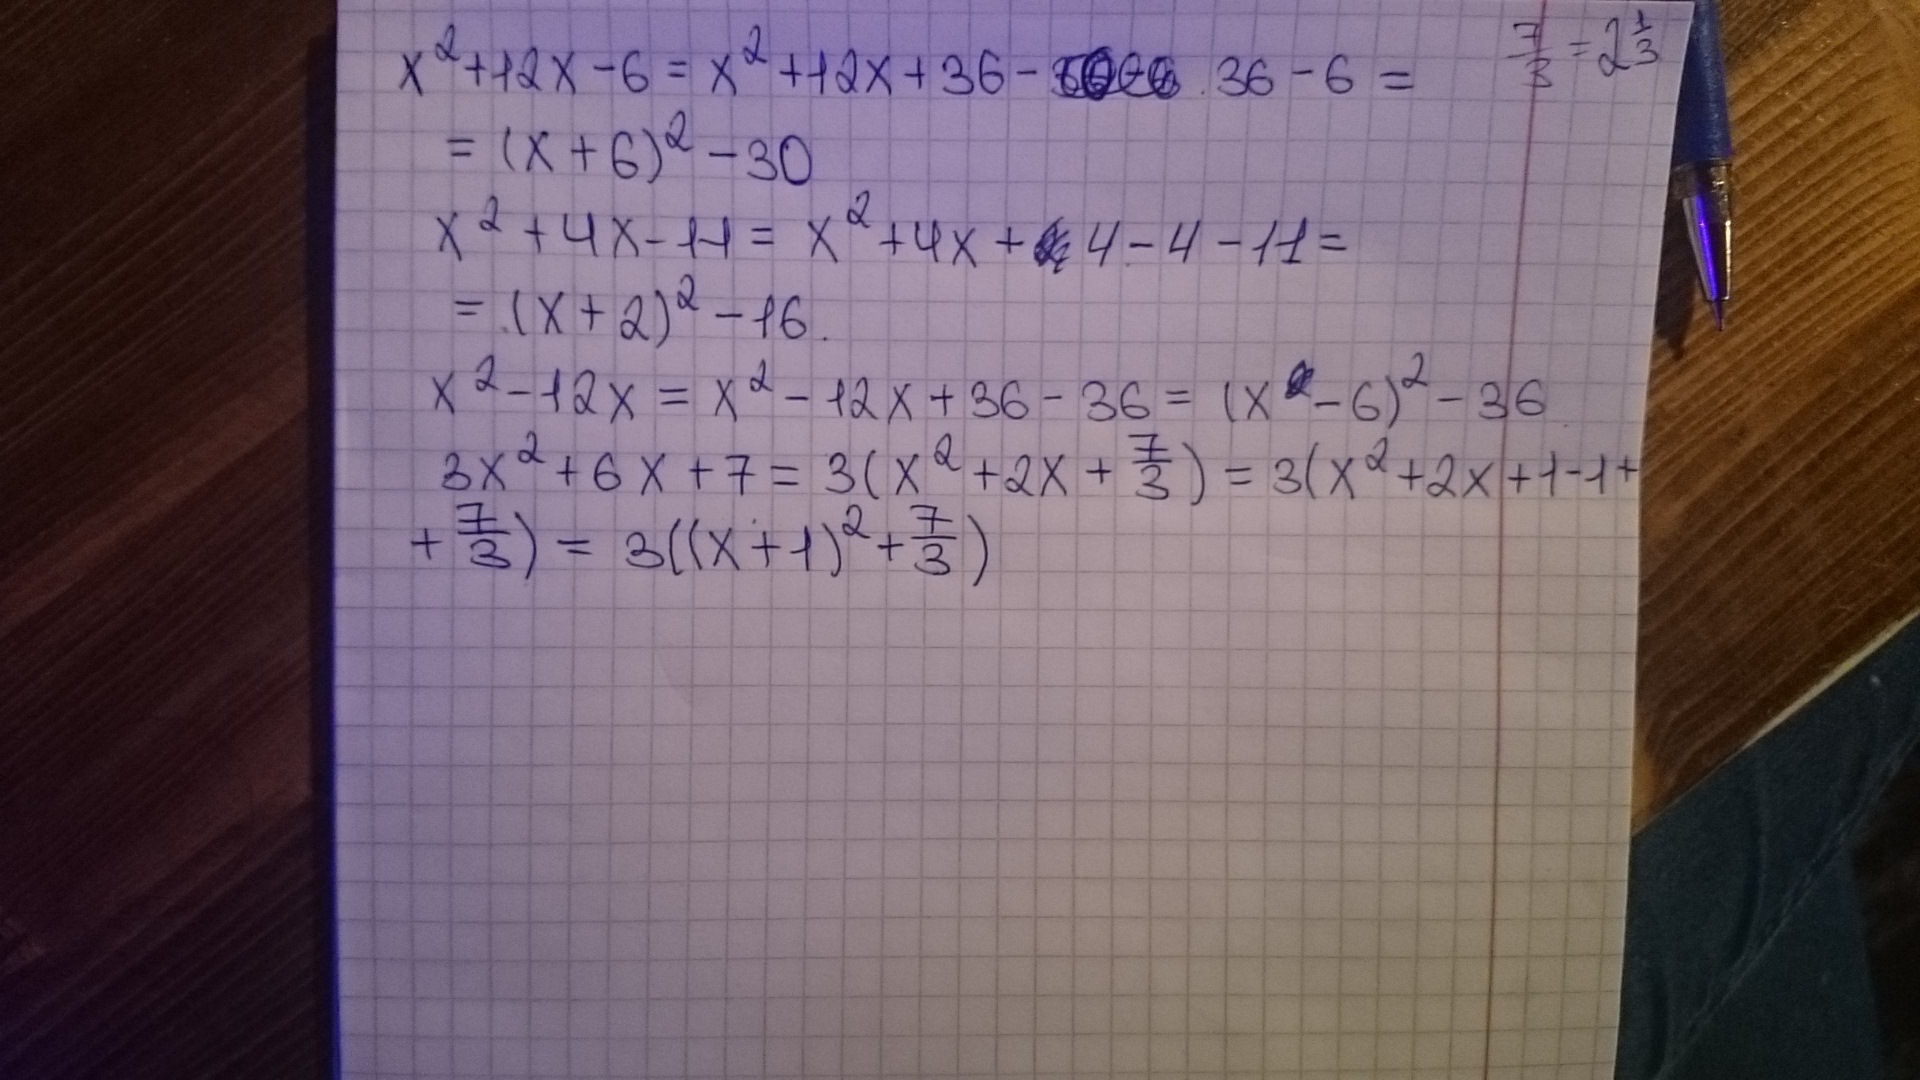 x²+12x-6=x²+12x+36- 36-6=
7/3=2 1/3
=(x+6)²-30
x²+4x-11=x²+4x+ 4-4-11=
=(x+2)²-16.
x²-12x=x²-12x+36-36=(x-6)²-36
3x²+6x+7=3(x²+2x+7/3)=3(x²+2x+1-1+
+7/3)=3((x+1)²+7/3)